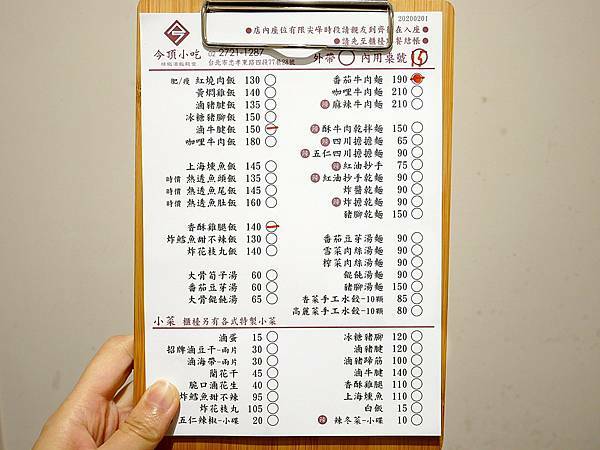 20200201
●店內座位有限尖峰時段請親友到齊再入座●
●請先至櫃檯點餐結帳●
今頂小吃
2721-1287
台北市忠孝東路四段77巷24號
外帶 內用桌號
肥/瘦 紅燒肉飯 130
黃燜雞飯 140
滷豬腱飯 135
冰糖豬腳飯 150
滷牛腱飯 150
咖哩牛肉飯 180
上海燻魚飯 145
時價 熱透魚頭飯 135
時價 熱透魚尾飯 145
時價 熱透魚肚飯 160
香酥雞腿飯 140
炸鱈魚甜不辣飯 130
炸花枝丸飯 140
大骨筍子湯 60
番茄豆芽湯 60
大骨餛飩湯 65
番茄牛肉麵 190
咖哩牛肉麵 210
辣 麻辣牛肉麵 210
辣 酥牛肉乾拌麵 150
辣 四川擔擔麵 65
辣 五仁四川擔擔麵 90
辣 紅油抄手 75
辣 紅油抄手乾麵 90
炸醬乾麵 90
辣 炸擔乾麵 90
豬腳乾麵 150
番茄豆芽湯麵 90
雪菜肉絲湯麵 90
榨菜肉絲湯麵 90
餛飩湯麵 90
豬腳湯麵 150
香菜手工水餃-10顆 85
高麗菜手工水餃-10顆 80
小菜 櫃檯另有各式特製小菜
滷蛋 15
招牌滷豆干-兩片 30
滷海帶-兩片 30
蘭花干 45
脆口滷花生 40
炸鱈魚甜不辣 95
炸花枝丸 105
五仁辣椒-小碟 20
冰糖豬腳 120
滷豬腱 120
滷豬蹄筋 100
滷牛腱 140
香酥雞腿 110
上海燻魚 110
白飯 15
辣 辣冬菜-小碟 10